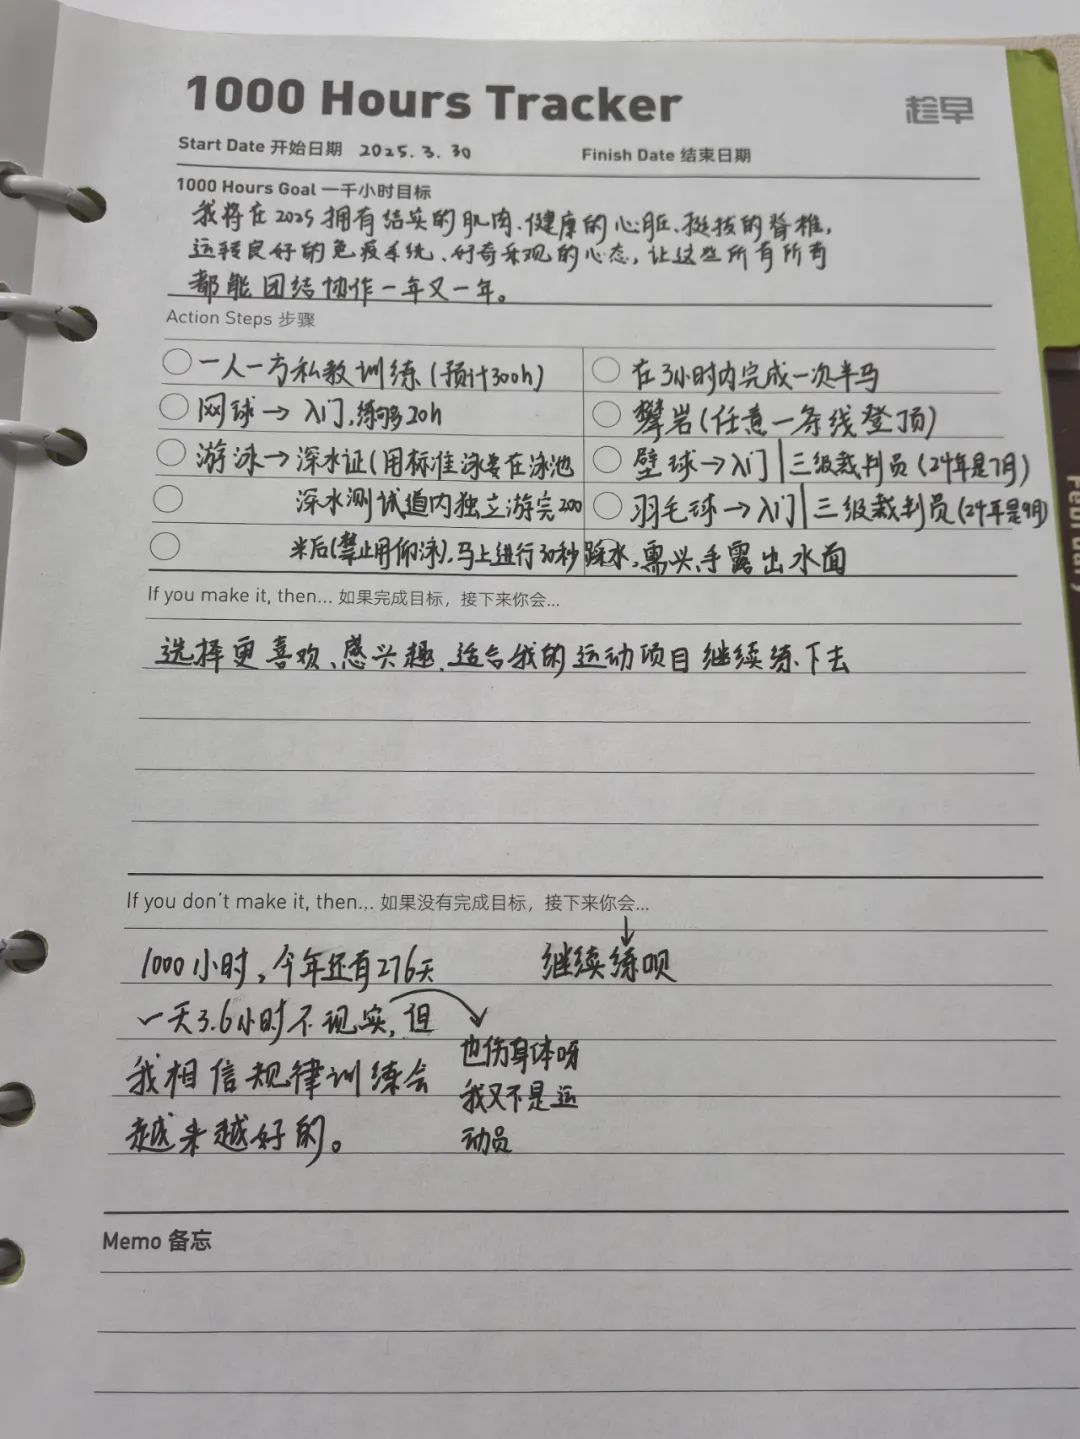 1000 Hours Tracker
趁早
Start Date 开始日期 2025.3.30
Finish Date 结束日期
1000 Hours Goal 一千小时目标
我将在2025拥有结实的肌肉、健康的心脏、挺拔的脊椎，
运转良好的免疫系统、好奇乐观的心态，让这些所有所有
都能团结协作一年又一年。
Action Steps 步骤
一人一方私教训练(预计300h)
在3小时内完成一次半马
网球→入门，练够20h
攀岩(任意一条线登顶)
游泳→深水证(用标准泳姿在泳池
壁球→入门|三级裁判员(24年是7月)
深水测试道内独立游完200
羽毛球→入门|三级裁判员(24年是9月)
米后(禁止用仰泳)，马上进行30秒踩水，需双手露出水面
If you make it, then... 如果完成目标，接下来你会...
选择更喜欢、感兴趣、适合我的运动项目继续练下去
If you don't make it, then... 如果没有完成目标，接下来你会...
↓
1000小时，今年还有276天
继续练呗
一天3.6小时不现实，但
也伤身体呀
我相信规律训练会
我又不是运
越来越好的。
动员
Memo 备忘